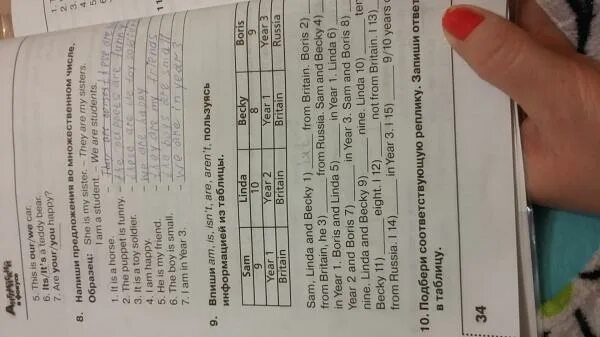 Английский
в фокусе
5. This is our/we car.
6. Its/It's a teddy bear.
7. Are your/you happy?
8. Напиши предложения во множественном числе.
Образец: She is my sister. – They are my sisters.
I am a student. – We are students.
1. It is a horse. –
2. The puppet is funny. – the puppets are funny
3. It is a toy soldier. –
4. I am happy. – we are happy
5. He is my friend. – my friends
6. The boy is small. – the boys are small
7. I am in Year 3. – we are in year 3
9. Впиши am, is, isn't, are, aren't, пользуясь
информацией из таблицы.
Sam Linda Becky Boris
9 10 8 9
Year 1 Year 2 Year 1 Year 3
Britain Britain Britain Russia
Sam, Linda and Becky 1) from Britain. Boris 2)
from Britain, he 3) from Russia. Sam and Becky 4)
in Year 1. Boris and Linda 5) in Year 1. Linda 6)
Year 2 and Boris 7) in Year 3. Sam and Boris 8)
nine. Linda and Becky 9) nine. Linda 10) ten
Becky 11) eight. I 12) not from Britain. I 13)
from Russia. I 14) in Year 3. I 15) 9/10 years
10. Подбери соответствующую реплику. Запиши ответ
в таблицу.
34